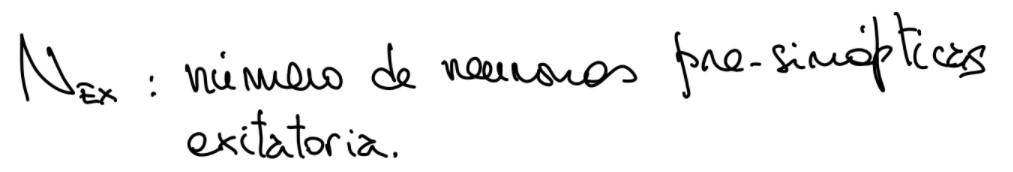 N_EX : número de neuronas pre-sinápticas
exitatoria.